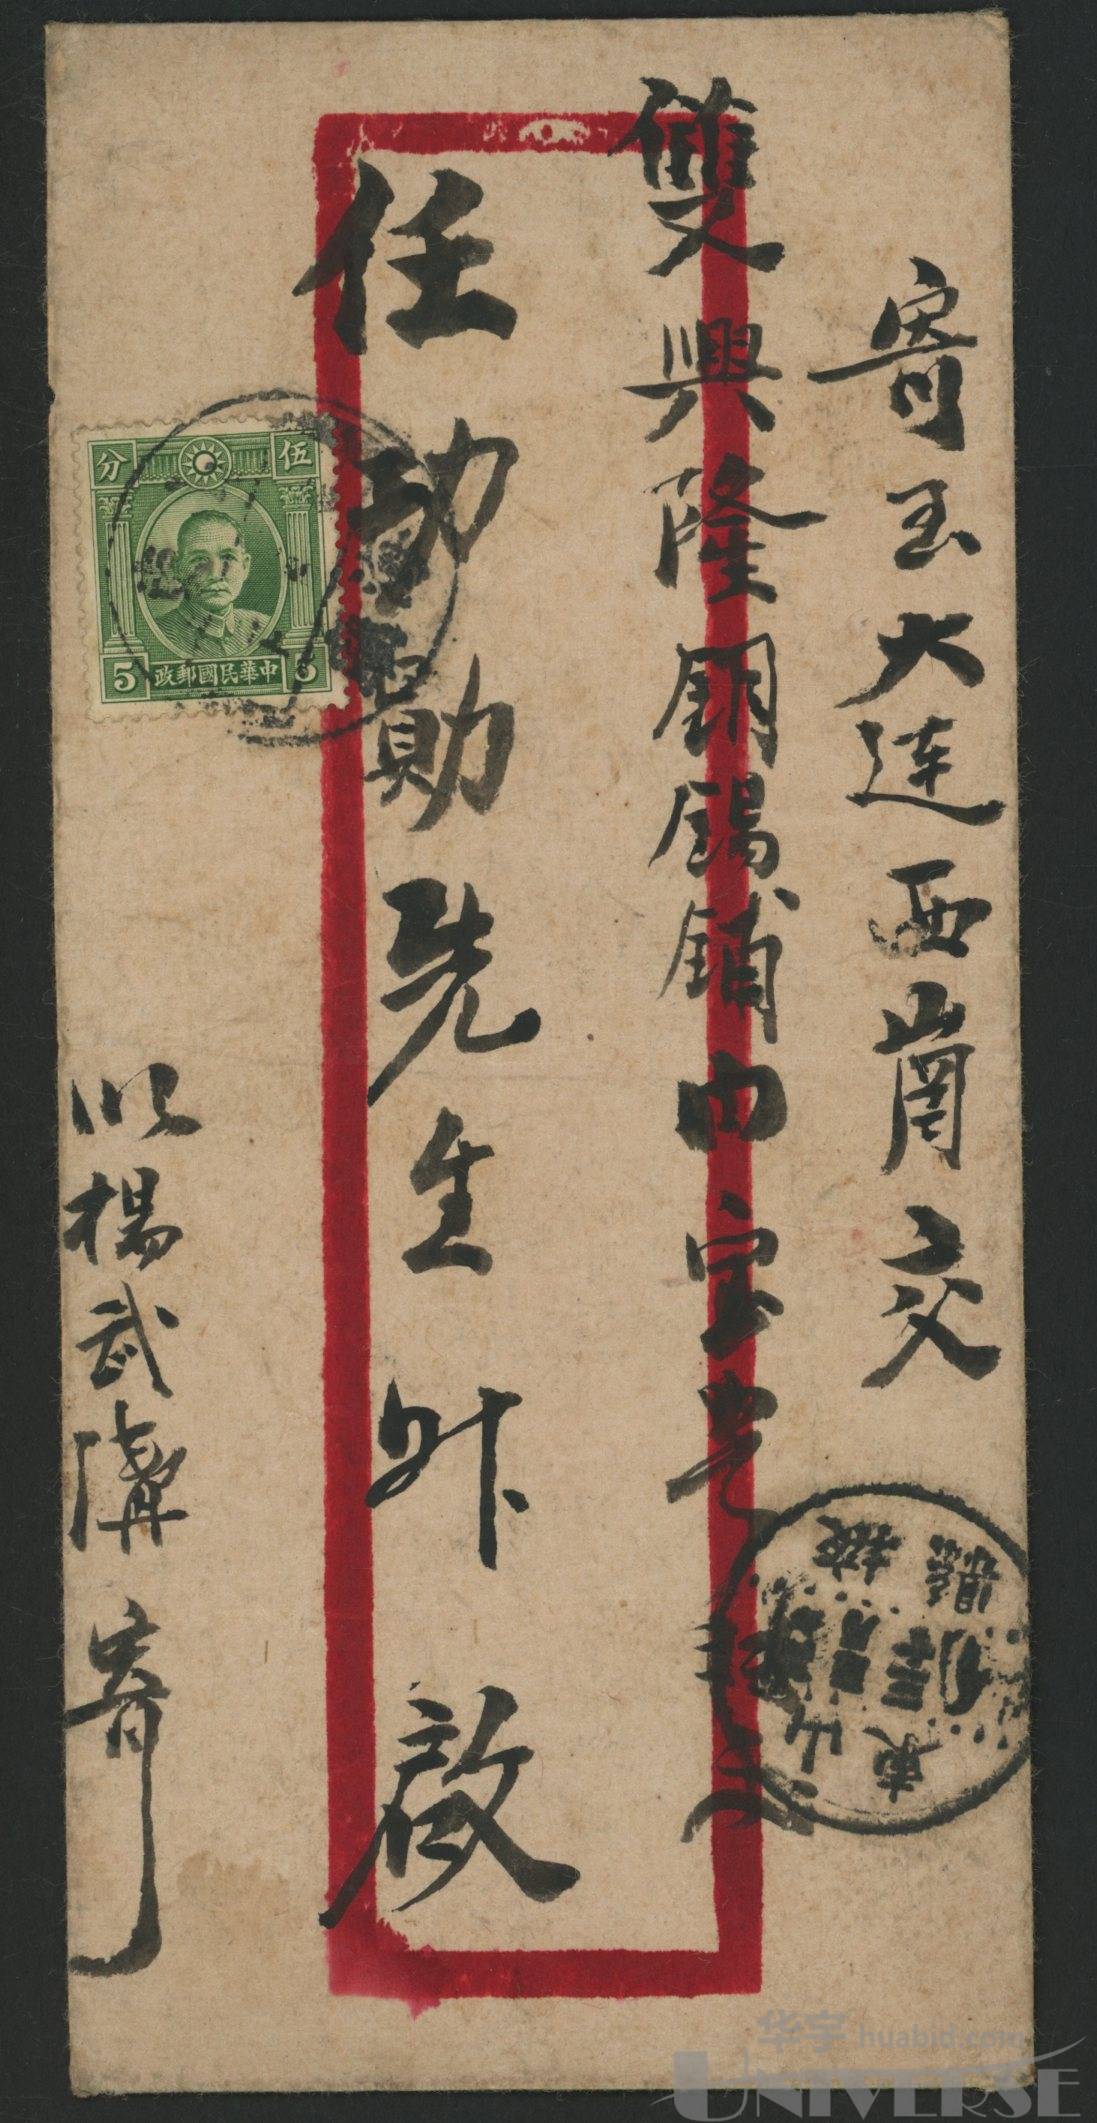 寄至大連西崗交
雙興隆銅錫舖內宝
任功勛先生升啟
楊武溝寄
分 伍
5 中華民國郵政 5
山東
华宇 huabid.com
UNIVERSE